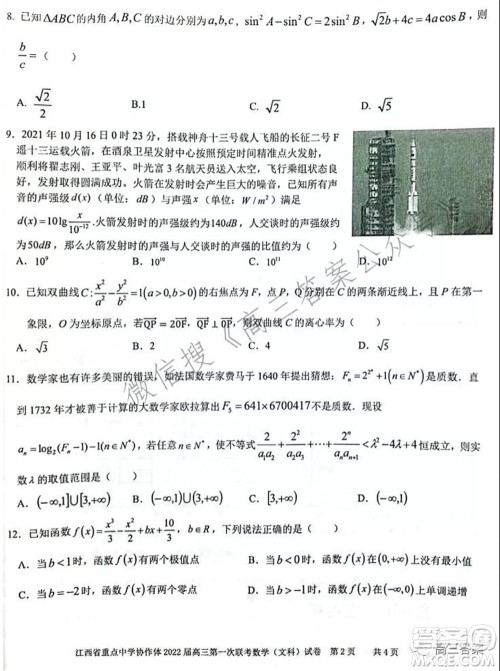 8. 已知ΔABC的内角A,B,C的对边分别为a,b,c, sin²A−sin²C=2sin²B, √2b+4c=4acosB, 则
b/c=（  ）
A. √2/2 B.1 C. √2 D. √5
9. 2021年10月16日0时23分，搭载神舟十三号载人飞船的长征二号F
遥十三运载火箭，在酒泉卫星发射中心按照预定时间精准点火发射，
顺利将翟志刚、王亚平、叶光富3名航天员送入太空，飞行乘组状态良
好，发射取得圆满成功。火箭在发射时会产生巨大的噪音，已知所有声
音的声强级d(x)（单位：dB）与声强x（单位：W/m²）满足
d(x)=10lg x/10⁻¹².火箭发射时的声强级约为140dB，人交谈时的声强级约
为50dB，那么火箭发射时的声强与人交谈时的声强的比值约为（  ）
A. 10⁹ B. 10¹⁰ C. 10¹¹ D. 10¹²
10. 已知双曲线C: x²/a²−y²/b²=1(a>0,b>0)的右焦点为F，点P, Q分别在C的两条渐近线上，且P在第一
象限，O为坐标原点，若QP=2OF, QF=OP，则双曲线C的离心率为（  ）
A. √3 B. 2 C. √2 D. √5
11. 数学家也有许多美丽的错误，如法国数学家费马于1640年提出猜想：Fₙ=2^(2ⁿ)+1(n∈N*)是质数，直
到1732年才被善于计算的大数学家欧拉算出F₅=641×6700417不是质数. 现设
aₙ=log₂(Fₙ−1)−1(n∈N*)，若任意n∈N*，使不等式2/(a₁a₂)+2²/(a₂a₃)+⋯+2ⁿ/(aₙaₙ₊₁)<λ²−4λ+4恒成立，则实
数λ的取值范围是（  ）
A. (−∞,1]∪[3,+∞) B. (−∞,1) C. (3,+∞) D. (−∞,1)∪(3,+∞)
12. 已知函数f(x)=x³/3−x²/2+bx+10/3, b∈R，下列说法正确的是（  ）
A．当b<1时，函数f(x)有两个极值点 B．当b<−6时，函数f(x)在(0,+∞)上没有最小值
C．当b=−2时，函数f(x)有两个零点 D．当0<b<1时，函数f(x)在(−∞,0)上单调递增
微信搜《高三答案公众
江西省重点中学协作体2022届高三第一次联考数学（文科）试卷 第2页 共4页
高三答案